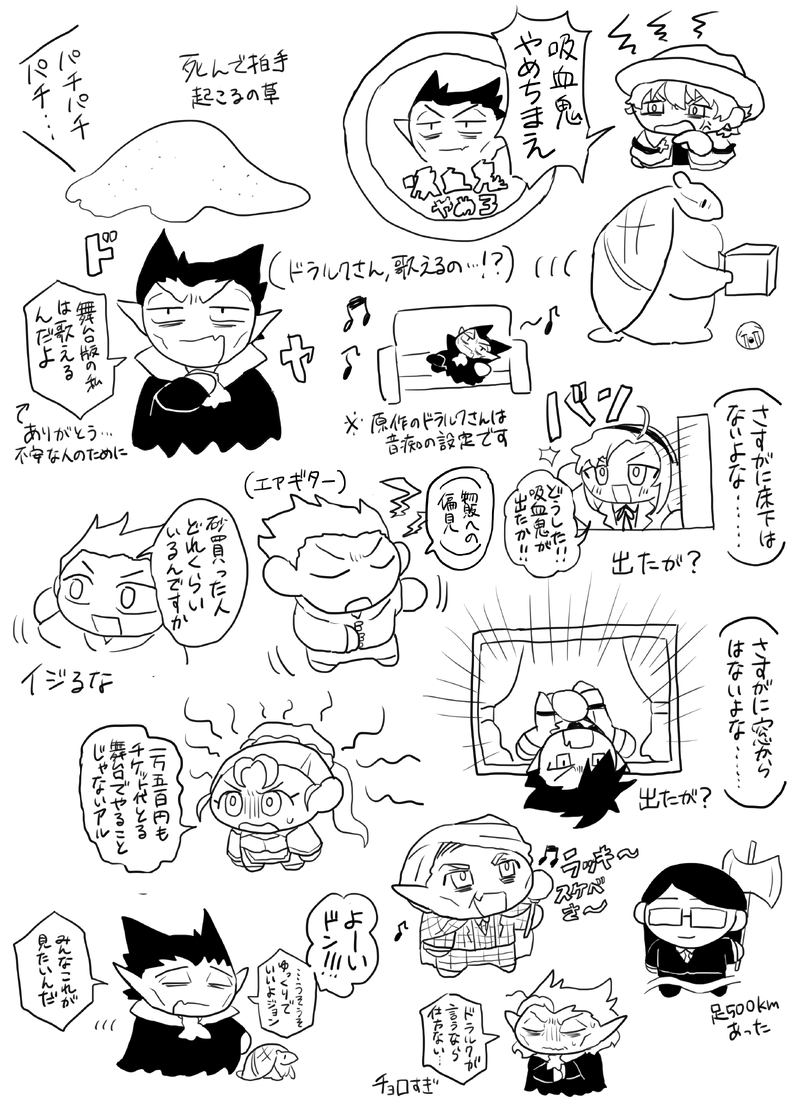 パチパチ
パチ…
死んで拍手
起こるの草
吸血鬼
やめちまえ
吸血鬼
やめろ
ド
ヤ
(ドラルクさん,歌えるの…!?)
舞台版の私
は歌える
んだよ
ありがとう…
不安な人のために
※原作のドラルクさんは
音痴の設定です
バン
さすがに床下は
ないよな……
どうした!!
吸血鬼が
出たか!!
出たが?
(エアギター)
物販への
偏見
砂買った人
どれくらい
いるんですか
イジるな
さすがに窓から
はないよな……
出たが?
一万五百円も
チケット代とる
舞台でやること
じゃないアル
ラッキ〜
スケベ
さ〜
足500km
あった
よーい
ドン!!!
…うそうそ
ゆっくりで
いいよジョン
みんなこれが
見たいんだ
ドラルクが
言うなら
仕方ない…
チョロすぎ